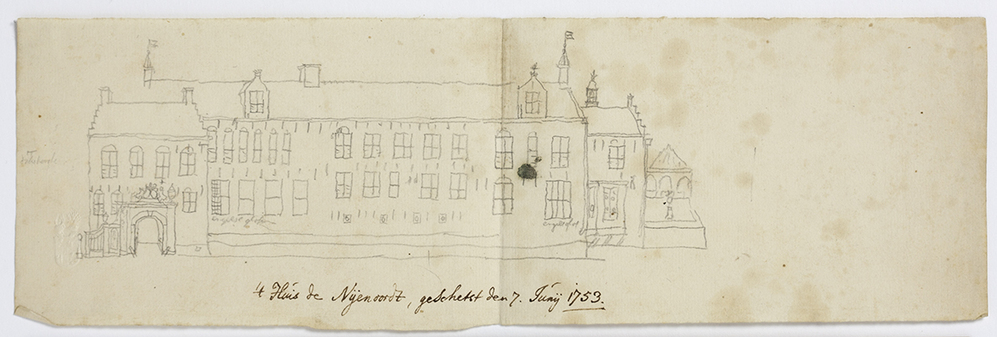 't Huis de Nijenoordt, geschetst den 7. Junij 1753.